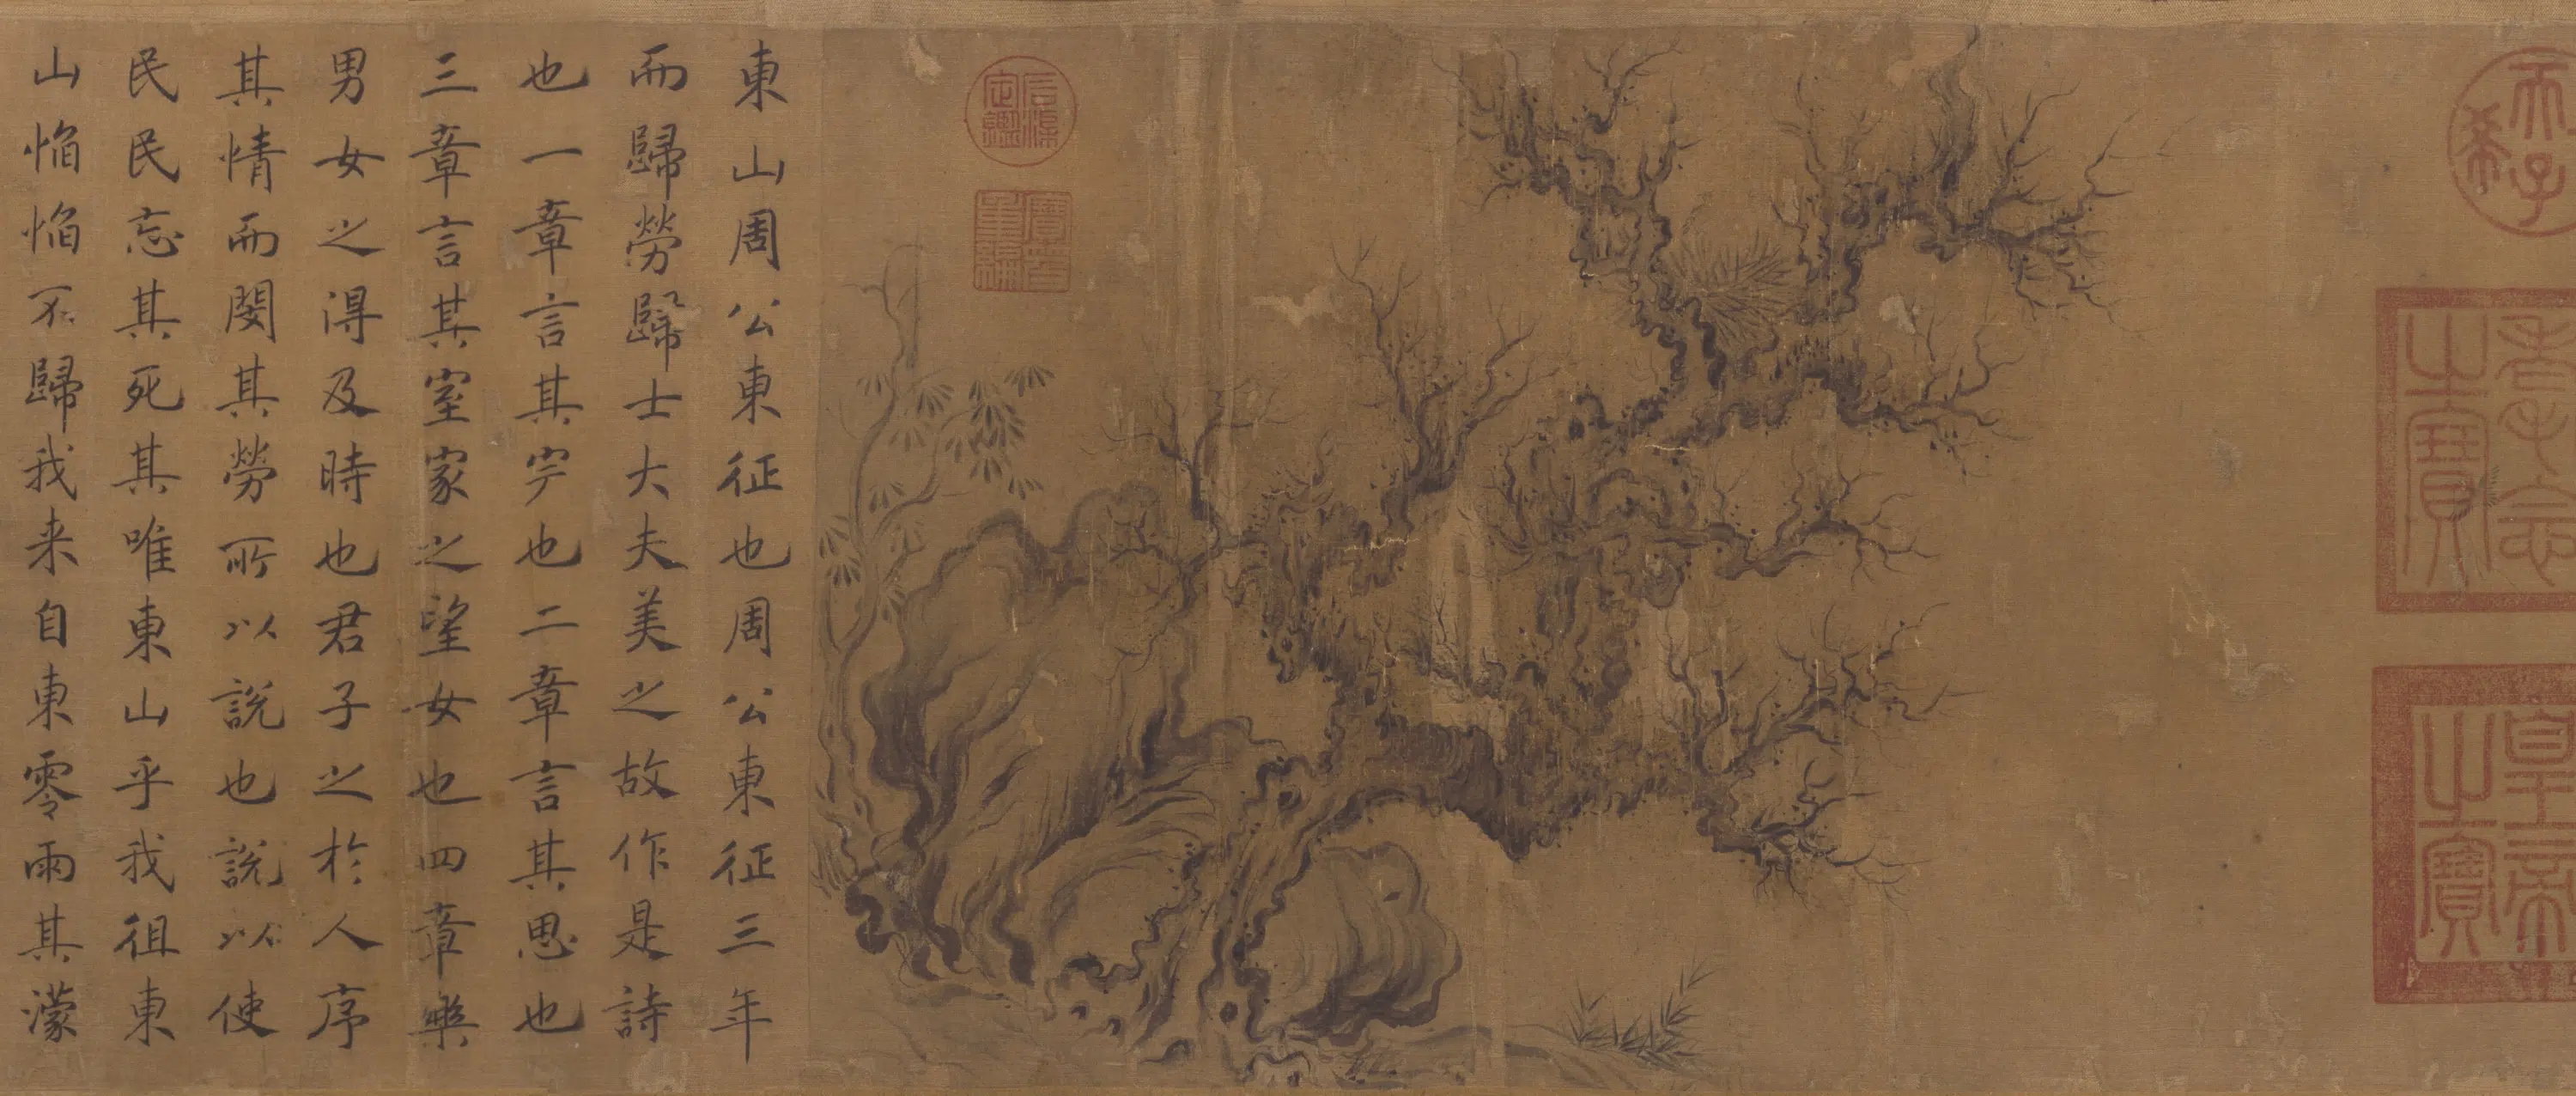 天子
希
耄念
之寶
皇帝
之寶
石渠
定鑑
寶笈
重編
東山周公東征也周公東征三年
而歸勞歸士大夫美之故作是詩
也一章言其完也二章言其思也
三章言其室家之望女也四章樂
男女之得及時也君子之於人序
其情而閔其勞所以說也說以使
民民忘其死其唯東山乎我徂東
山慆慆不歸我来自東零雨其濛